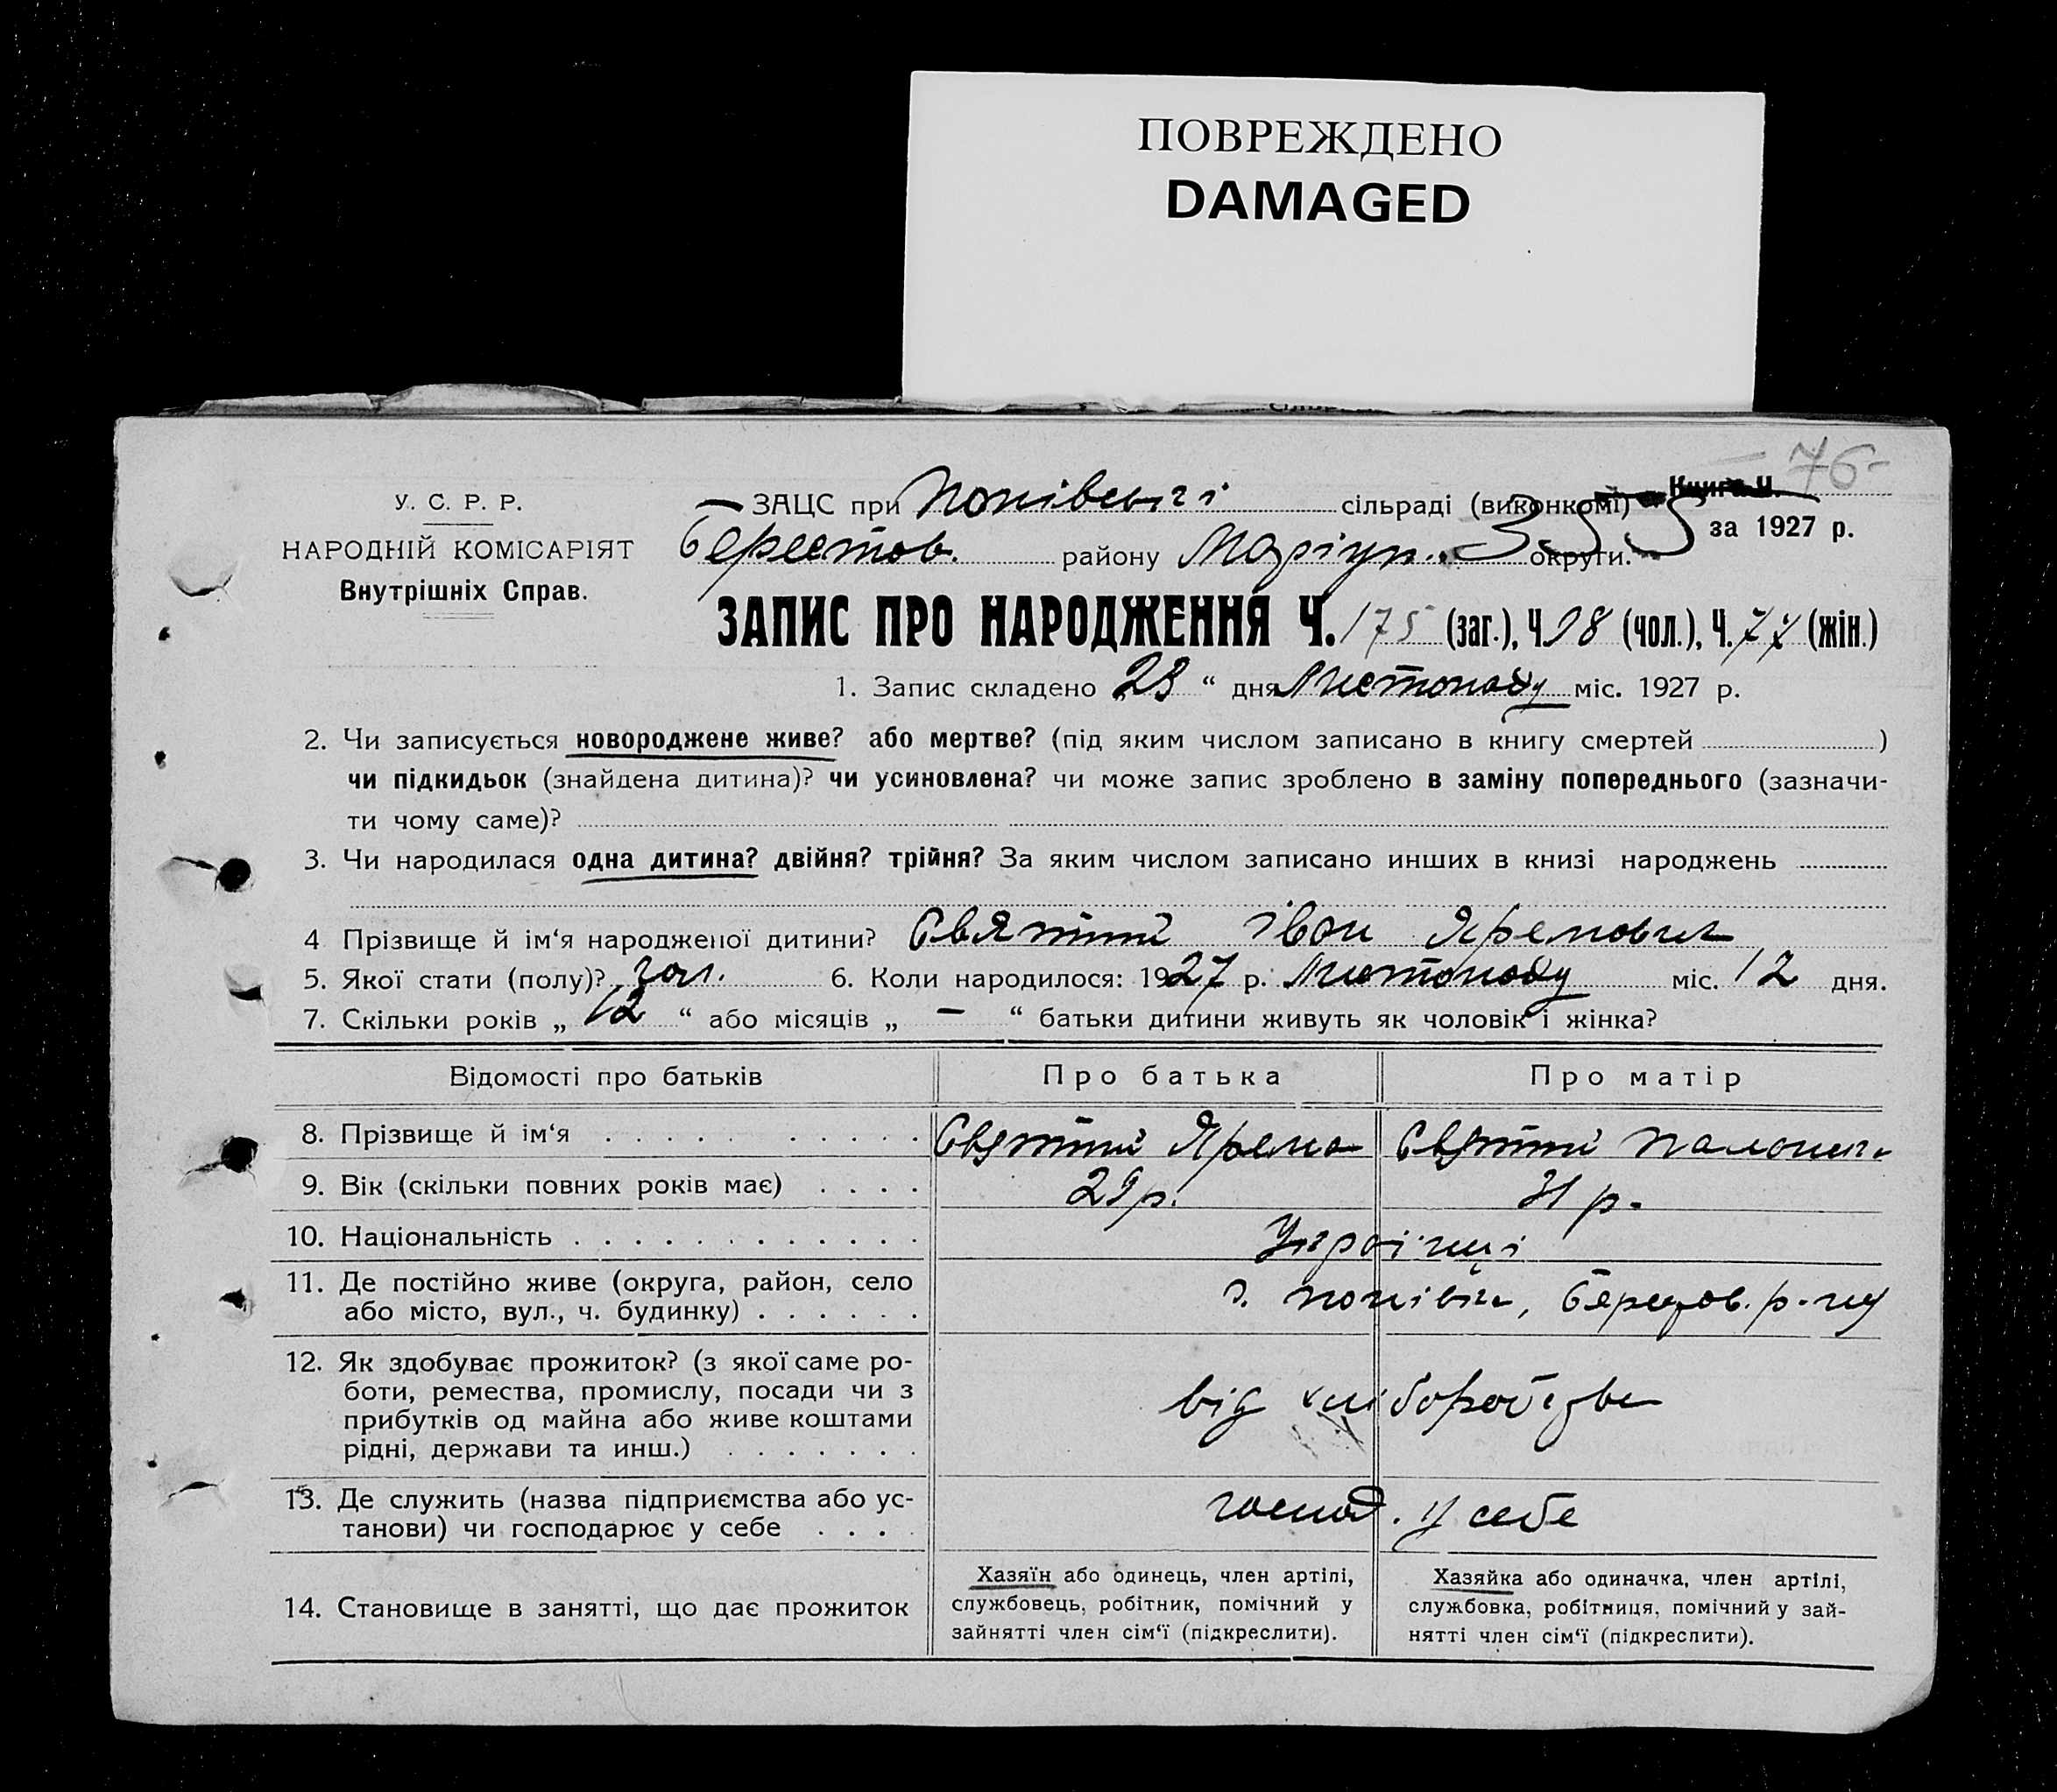 ПОВРЕЖДЕНО
DAMAGED
76
У. С. Р. Р.
НАРОДНІЙ КОМІСАРІЯТ
Внутрішніх Справ.
ЗАЦС при Попівській сільраді (виконкомі) Книга Ч. 355
за 1927 р.
Берестов. району Маріуп. округи.
ЗАПИС ПРО НАРОДЖЕННЯ Ч. 175 (заг.), Ч. 98 (чол.), Ч. 77 (жін.)
1. Запис складено 23 “ дня Листопаду міс. 1927 р.
2. Чи записується новороджене живе? або мертве? (під яким числом записано в книгу смертей )
чи підкидьок (знайдена дитина)? чи усиновлена? чи може запис зроблено в заміну попереднього (зазначи-
ти чому саме)?
3. Чи народилася одна дитина? двійня? трійня? За яким числом записано инших в книзі народжень
4 Прізвище й ім‘я народженої дитини? Святий Іван Яремович
5. Якої стати (полу)? чол. 6. Коли народилося: 1927 р. Листопаду міс. 12 дня.
7. Скільки років „ 12 “ або місяців „ — “ батьки дитини живуть як чоловік і жінка?
Відомості про батьків Про батька Про матір
8. Прізвище й ім‘я Святий Ярема Святий
9. Вік (скільки повних років має) 29 р. 31 р.
10. Національність Українці
11. Де постійно живе (округа, район, село
або місто, вул., ч. будинку) с. Попівка, Берестов. р-ну
12. Як здобуває прожиток? (з якої саме ро-
боти, ремества, промислу, посади чи з
прибутків од майна або живе коштами
рідні, держави та инш.) від хліборобства
13. Де служить (назва підприємства або ус-
танови) чи господарює у себе госпад. у себе
14. Становище в занятті, що дає прожиток
Хазяїн або одинець, член артілі,
службовець, робітник, помічний у
зайнятті член сім‘ї (підкреслити).
Хазяйка або одиначка, член артілі,
службовка, робітниця, помічний у зай-
нятті член сім‘ї (підкреслити).